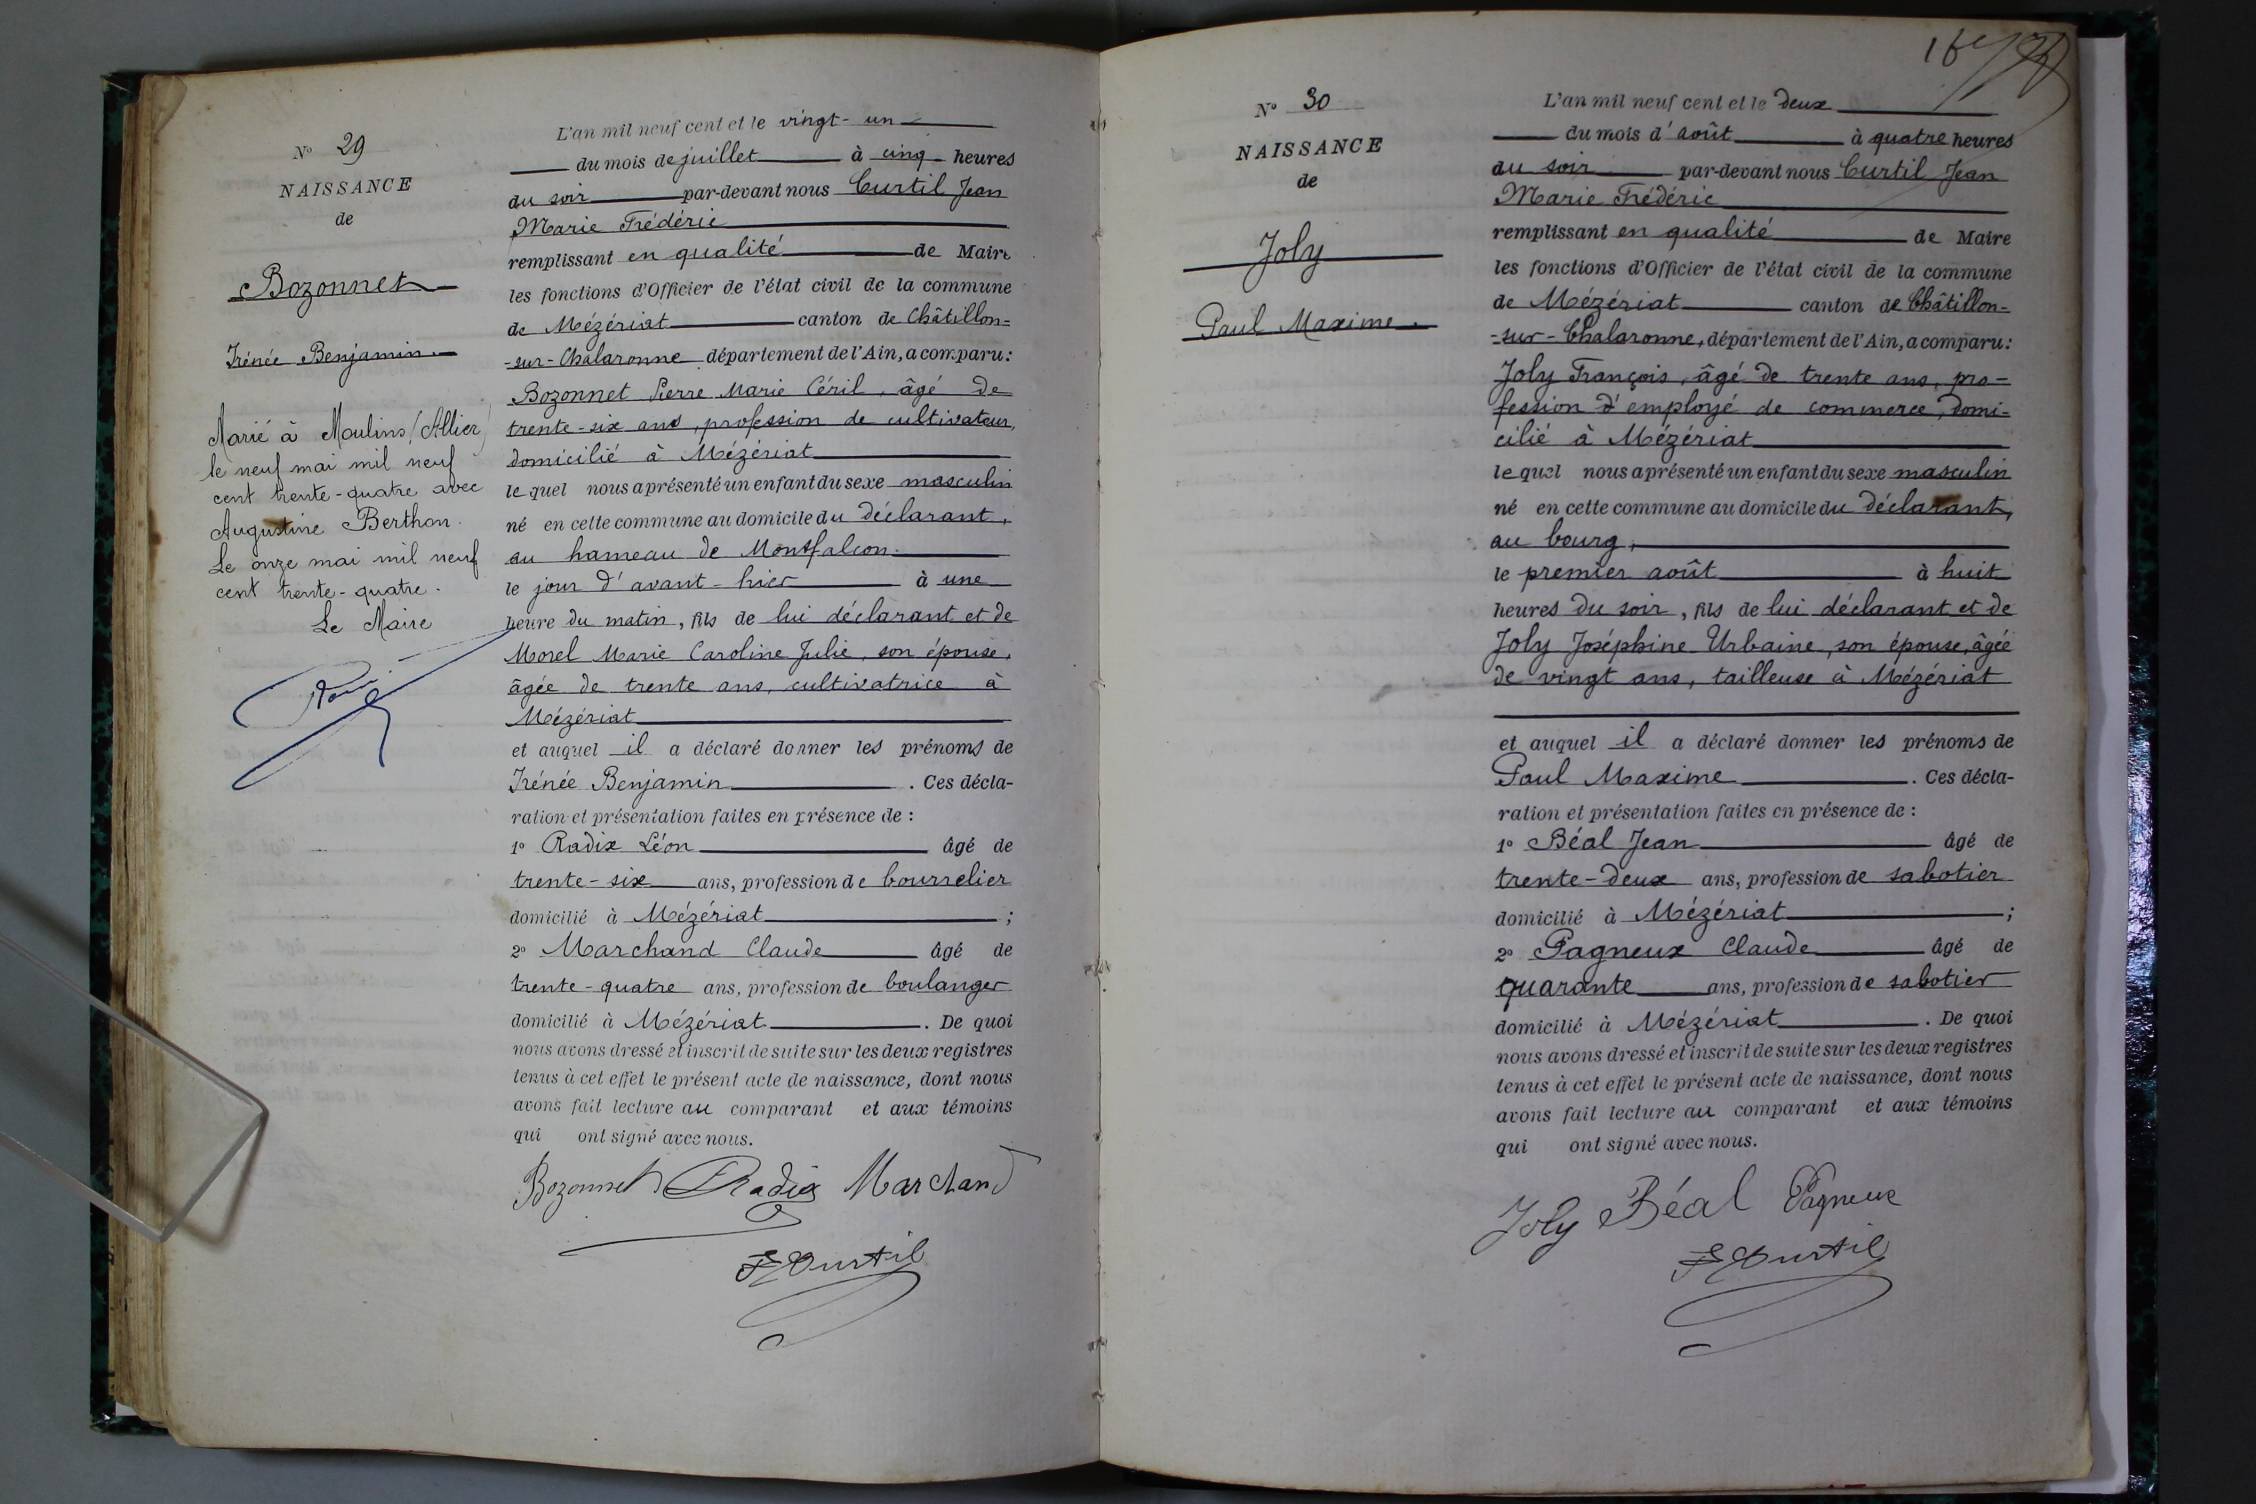 N° 29
NAISSANCE
de
Bozonnet
Irénée Benjamin.
Marié à Moulins (Allier)
le neuf mai mil neuf
cent trente-quatre avec
Augustine Berthon.
Le onze mai mil neuf
cent trente-quatre.
Le Maire
L'an mil neuf cent et le vingt-un
du mois de juillet à cinq heures
du soir par-devant nous Curtil Jean
Marie Frédéric
remplissant en qualité de Maire
les fonctions d'Officier de l'état civil de la commune
de Mézériat canton de Châtillon=
-sur-Chalaronne département de l'Ain, a comparu:
Bozonnet Pierre Marie Céril, âgé de
trente-six ans, profession de cultivateur,
domicilié à Mézériat
le quel nous a présenté un enfant du sexe masculin
né en cette commune au domicile du déclarant,
au hameau de Montfalcon.
le jour d'avant-hier à une
heure du matin, fils de lui déclarant et de
Morel Marie Caroline Julie, son épouse,
âgée de trente ans, cultivatrice à
Mézériat
et auquel il a déclaré donner les prénoms de
Irénée Benjamin. Ces décla-
ration et présentation faites en présence de :
1° Radix Léon âgé de
trente-six ans, profession de bourrelier
domicilié à Mézériat ;
2° Marchand Claude âgé de
trente-quatre ans, profession de boulanger
domicilié à Mézériat. De quoi
nous avons dressé et inscrit de suite sur les deux registres
tenus à cet effet le présent acte de naissance, dont nous
avons fait lecture au comparant et aux témoins
qui ont signé avec nous.
Bozonnet Radix Marchand
F Curtil
16
N° 30
NAISSANCE
de
Joly
Paul Maxime.
L'an mil neuf cent et le deux
du mois d'août à quatre heures
du soir par-devant nous Curtil Jean
Marie Frédéric
remplissant en qualité de Maire
les fonctions d'Officier de l'état civil de la commune
de Mézériat canton de Châtillon-
-sur-Chalaronne, département de l'Ain, a comparu:
Joly François, âgé de trente ans, pro-
fession d'employé de commerce, domi-
cilié à Mézériat
le quel nous a présenté un enfant du sexe masculin
né en cette commune au domicile du déclarant,
au bourg,
le premier août à huit
heures du soir, fils de lui déclarant et de
Joly Joséphine Urbaine, son épouse, âgée
de vingt ans, tailleuse à Mézériat
et auquel il a déclaré donner les prénoms de
Paul Maxime. Ces décla-
ration et présentation faites en présence de :
1° Béal Jean âgé de
trente-deux ans, profession de sabotier
domicilié à Mézériat ;
2° Pagneux Claude âgé de
quarante ans, profession de sabotier
domicilié à Mézériat. De quoi
nous avons dressé et inscrit de suite sur les deux registres
tenus à cet effet le présent acte de naissance, dont nous
avons fait lecture au comparant et aux témoins
qui ont signé avec nous.
Joly Béal Pagneux
F Curtil